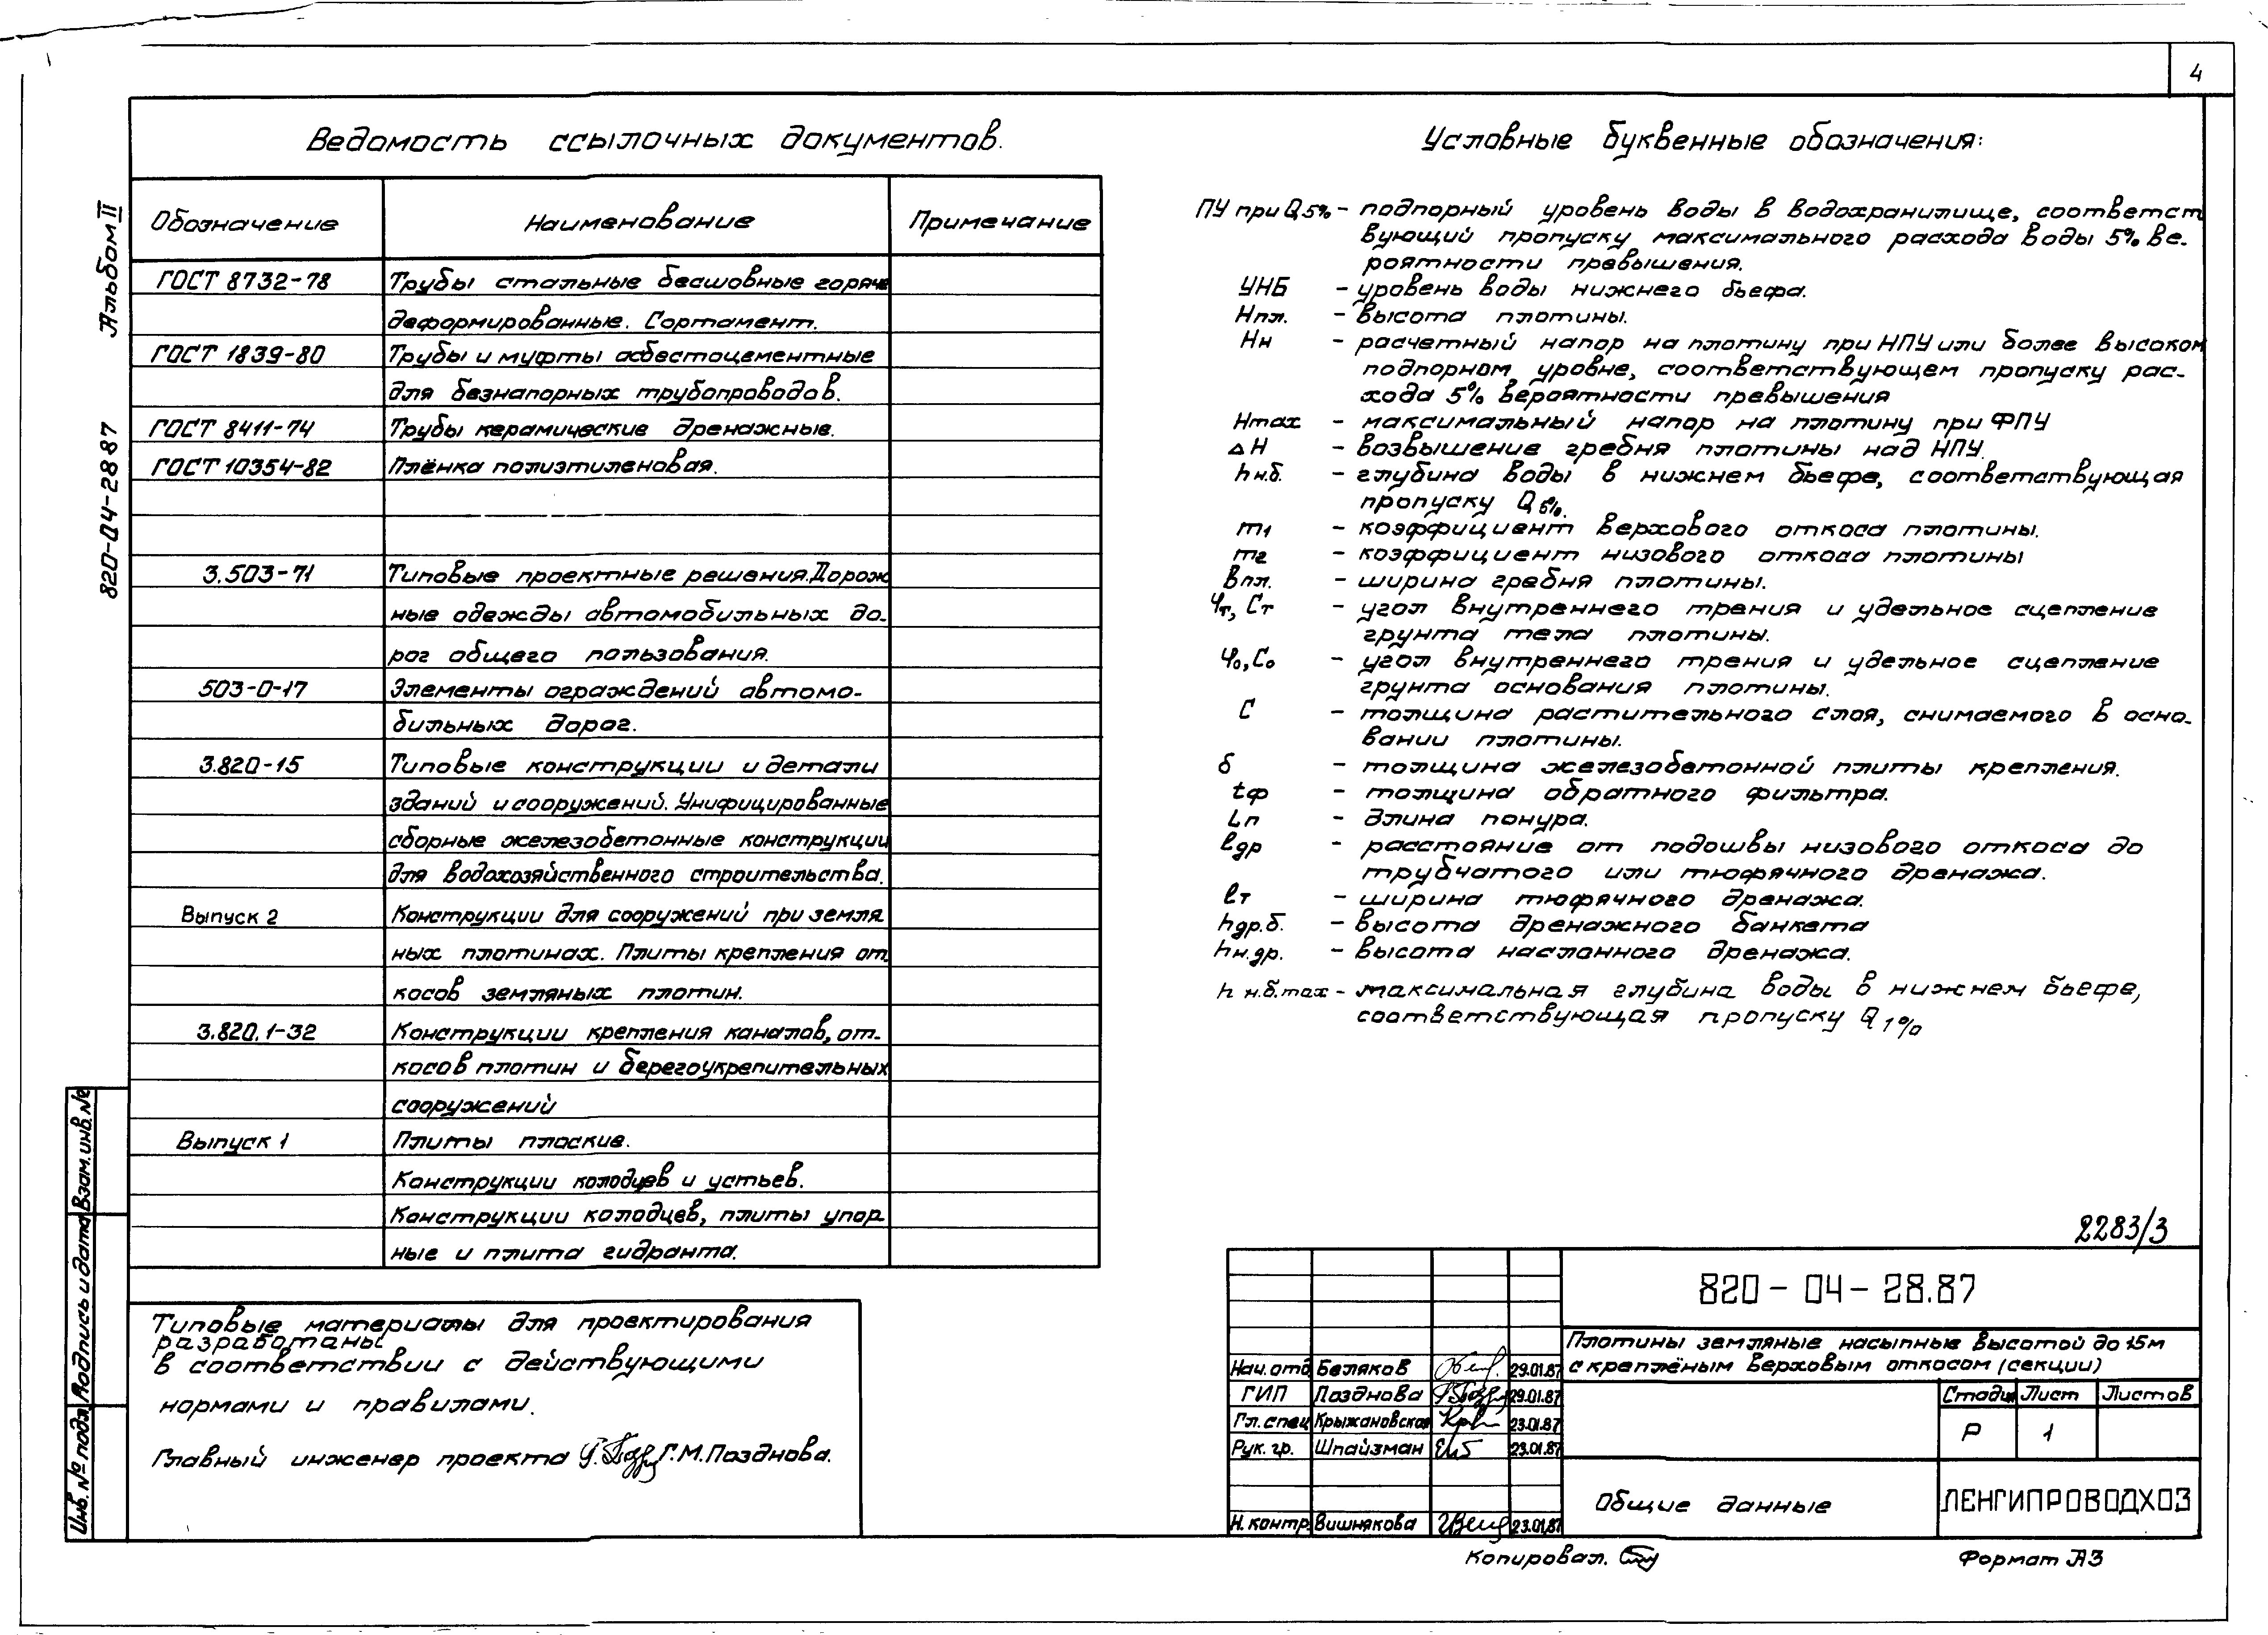 4
Ведомость ссылочных документов.
Обозначение Наименование Примечание
ГОСТ 8732-78 Трубы стальные бесшовные горяче
деформированные. Сортамент.
ГОСТ 1839-80 Трубы и муфты асбестоцементные
для безнапорных трубопроводов.
ГОСТ 8411-74 Трубы керамические дренажные.
ГОСТ 10354-82 Плёнка полиэтиленовая.
3.503-71 Типовые проектные решения. Дорож
ные одежды автомобильных до-
рог общего пользования.
503-0-17 Элементы ограждений автомо-
бильных дорог.
3.820-15 Типовые конструкции и детали
зданий и сооружений. Унифицированные
сборные железобетонные конструкции
для водохозяйственного строительства.
Выпуск 2 Конструкции для сооружений при земля
ных плотинах. Плиты крепления от-
косов земляных плотин.
3.820.1-32 Конструкции крепления каналов, от-
косов плотин и берегоукрепительных
сооружений
Выпуск 1 Плиты плоские.
Конструкции колодцев и устьев.
Конструкции колодцев, плиты упор
ные и плита гидранта.
Типовые материалы для проектирования
разработаны
в соответствии с действующими
нормами и правилами.
Главный инженер проекта Г.М.Позднова.
Альбом II
820-04-28 87
Взам.инв.№
Подпись и дата
Инв.№ подл.
Условные буквенные обозначения:
ПУ при Q 5% - подпорный уровень воды в водохранилище, соответст
вующий пропуску максимального расхода воды 5% ве-
роятности превышения.
УНБ - уровень воды нижнего бьефа.
Нпл. - высота плотины.
Нн - расчетный напор на плотину при НПУ или более высоком
подпорном уровне, соответствующем пропуску рас-
хода 5% вероятности превышения
Нmax - максимальный напор на плотину при ФПУ
ΔН - возвышение гребня плотины над НПУ.
hн.б. - глубина воды в нижнем бьефе, соответствующая
пропуску Q 5%.
m1 - коэффициент верхового откоса плотины.
m2 - коэффициент низового откоса плотины
Впл. - ширина гребня плотины.
φт, Ст - угол внутреннего трения и удельное сцепление
грунта тела плотины.
φо, Со - угол внутреннего трения и удельное сцепление
грунта основания плотины.
С - толщина растительного слоя, снимаемого в осно-
вании плотины.
δ - толщина железобетонной плиты крепления.
tф - толщина обратного фильтра.
Lп - длина понура.
ℓдр - расстояние от подошвы низового откоса до
трубчатого или тюфячного дренажа.
ℓт - ширина тюфячного дренажа.
hдр.б. - высота дренажного банкета
hн.др. - высота наслонного дренажа.
h н.б.max - максимальная глубина воды в нижнем бьефе,
соответствующая пропуску Q 1%
2283/3
820-04-28.87
Плотины земляные насыпные высотой до 15м
с креплёным верховым откосом (секции)
Нач.отд. Беляков 29.01.87
ГИП Позднова 29.01.87
Гл.спец Крыжановская 23.01.87
Рук.гр. Шпайзман 23.01.87
Н.контр. Вишнякова 23.01.87
Стадия Лист Листов
Р 1
Общие данные
ЛЕНГИПРОВОДХОЗ
Копировал.
Формат А3